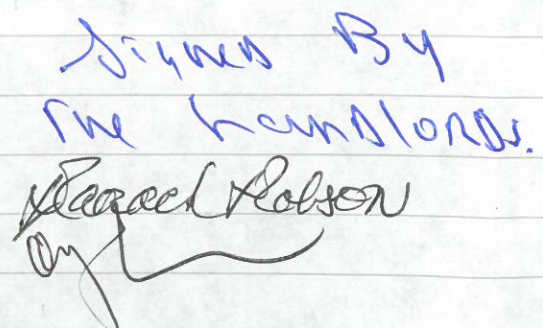 Signed By
The LandlORDs.
Robson